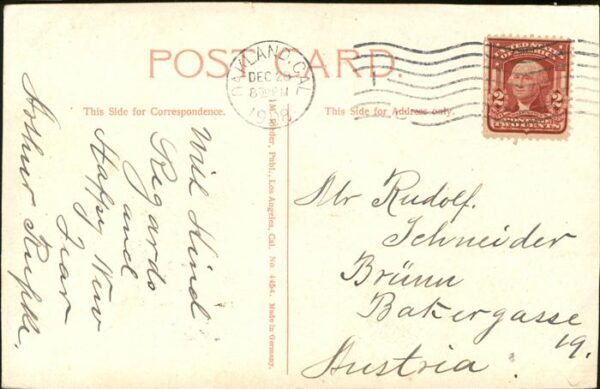 POST CARD.
OAKLAND, CAL.
DEC 28
8 PM
1908
2 2
TWO CENTS
This Side for Correspondence.
This Side for Address only.
With Kind
Regards
and
Happy New
Year
Arthur
M. Rieder, Publ., Los Angeles, Cal. No. 4454. Made in Germany.
Mr Rudolf.
Schneider
Brünn
Bakergasse
19.
Austria.